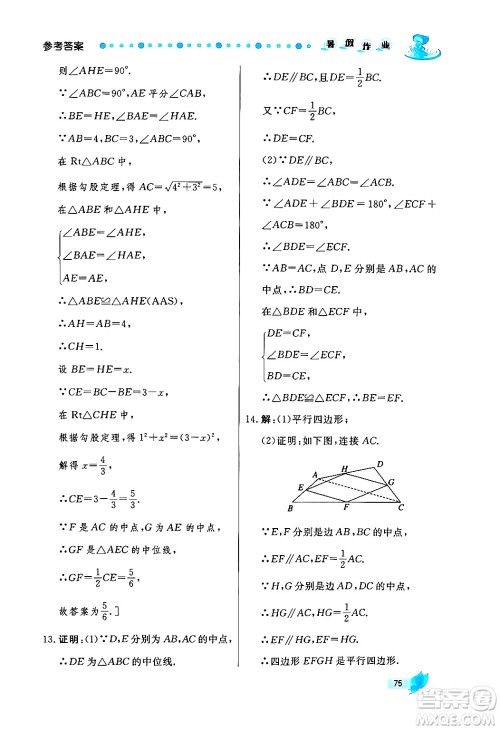 参考答案
暑假作业
则∠AHE=90°.
∵∠ABC=90°,AE平分∠CAB,
∴BE=HE,∠BAE=∠HAE.
∵AB=4,BC=3,∠ABC=90°,
在Rt△ABC中,
根据勾股定理,得AC=√(4²+3²)=5,
在△ABE和△AHE中,
{∠ABE=∠AHE,
∠BAE=∠HAE,
AE=AE,
∴△ABE≌△AHE(AAS),
∴AH=AB=4,
∴CH=1.
设BE=HE=x.
∴CE=BC-BE=3-x,
在Rt△CHE中,
根据勾股定理得1²+x²=(3-x)²,
解得x=4/3,
∴CE=3-4/3=5/3.
∵F是AC的中点,G为AE的中点,
∴GF是△AEC的中位线,
∴GF=1/2CE=5/6.
故答案为5/6.]
13.证明:(1)∵D、E分别为AB、AC的中点,
∴DE为△ABC的中位线.
∴DE∥BC,且DE=1/2BC.
又∵CF=1/2BC,
∴DE=CF.
(2)∵DE∥BC,
∴∠ADE=∠ABC=∠ACB.
∵∠ADE+∠BDE=180°,∠ECF+
∠ACB=180°,∴∠BDE=∠ECF.
∵AB=AC,点D,E分别是AB,AC的
中点,∴BD=CE.
在△BDE和△ECF中,
{DE=CF,
∠BDE=∠ECF,
BD=CE,
∴△BDE≌△ECF,∴BE=EF.
14.解:(1)平行四边形;
(2)证明:如下图,连接AC.
A
H
D
E
G
B
F
C
∵E,F分别是边AB,BC的中点,
∴EF∥AC,且EF=1/2AC.
∵H,G分别是边AD,DC的中点,
∴HG∥AC,且HG=1/2AC.
∴HG∥EF,且HG=EF.
∴四边形EFGH是平行四边形.
75
答案圈